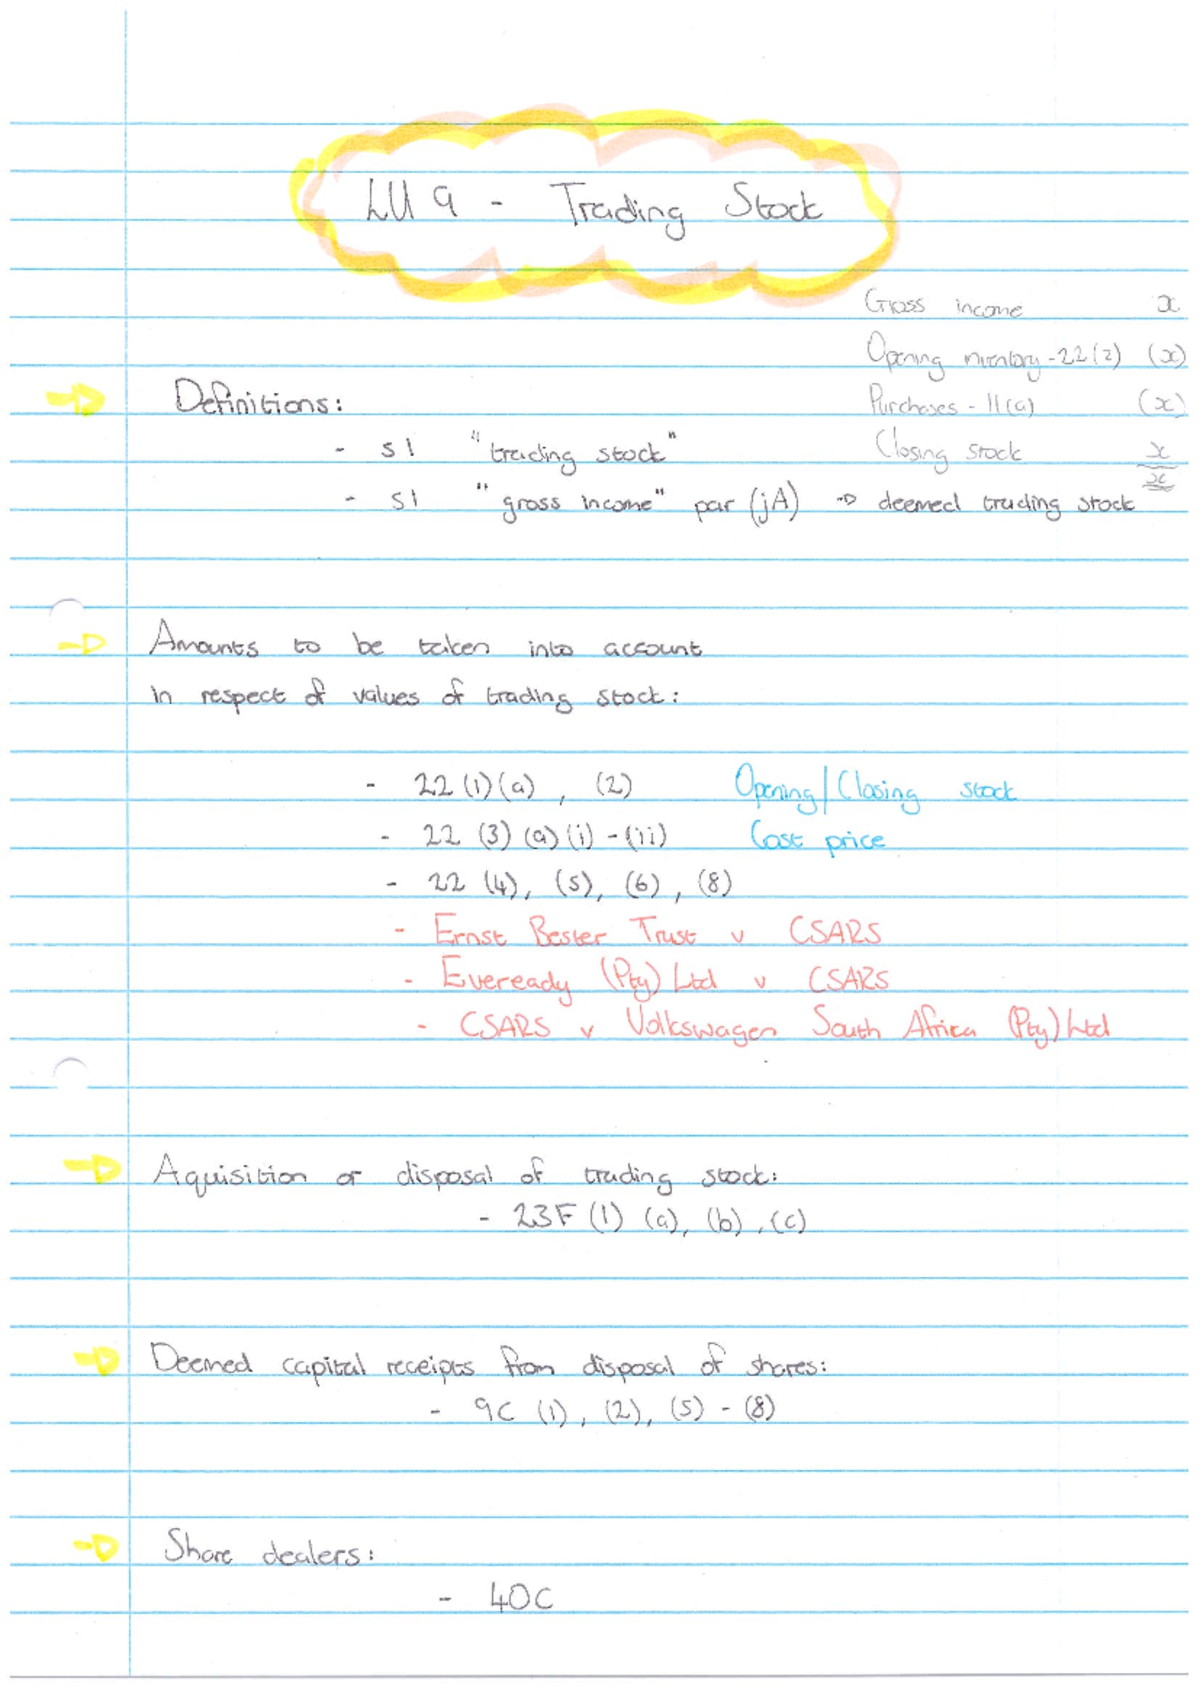 LU 9 - Trading Stock
Gross income x
Opening inventory - 22(2) (x)
Purchases - 11(a) (x)
Closing stock x
x
Definitions:
- s1 "trading stock"
- s1 "gross income" par (jA) → deemed trading stock
Amounts to be taken into account
in respect of values of trading stock:
- 22 (1)(a), (2) Opening/Closing stock
- 22 (3) (a)(i) - (iii) Cost price
- 22 (4), (5), (6), (8)
- Ernst Bester Trust v CSARS
- Eveready (Pty) Ltd v CSARS
- CSARS v Volkswagen South Africa (Pty) Ltd
Aquisition or disposal of trading stock:
- 23F (1) (a), (b), (c)
Deemed capital receipts from disposal of shares:
- 9C (1), (2), (5) - (8)
Share dealers:
- 40C